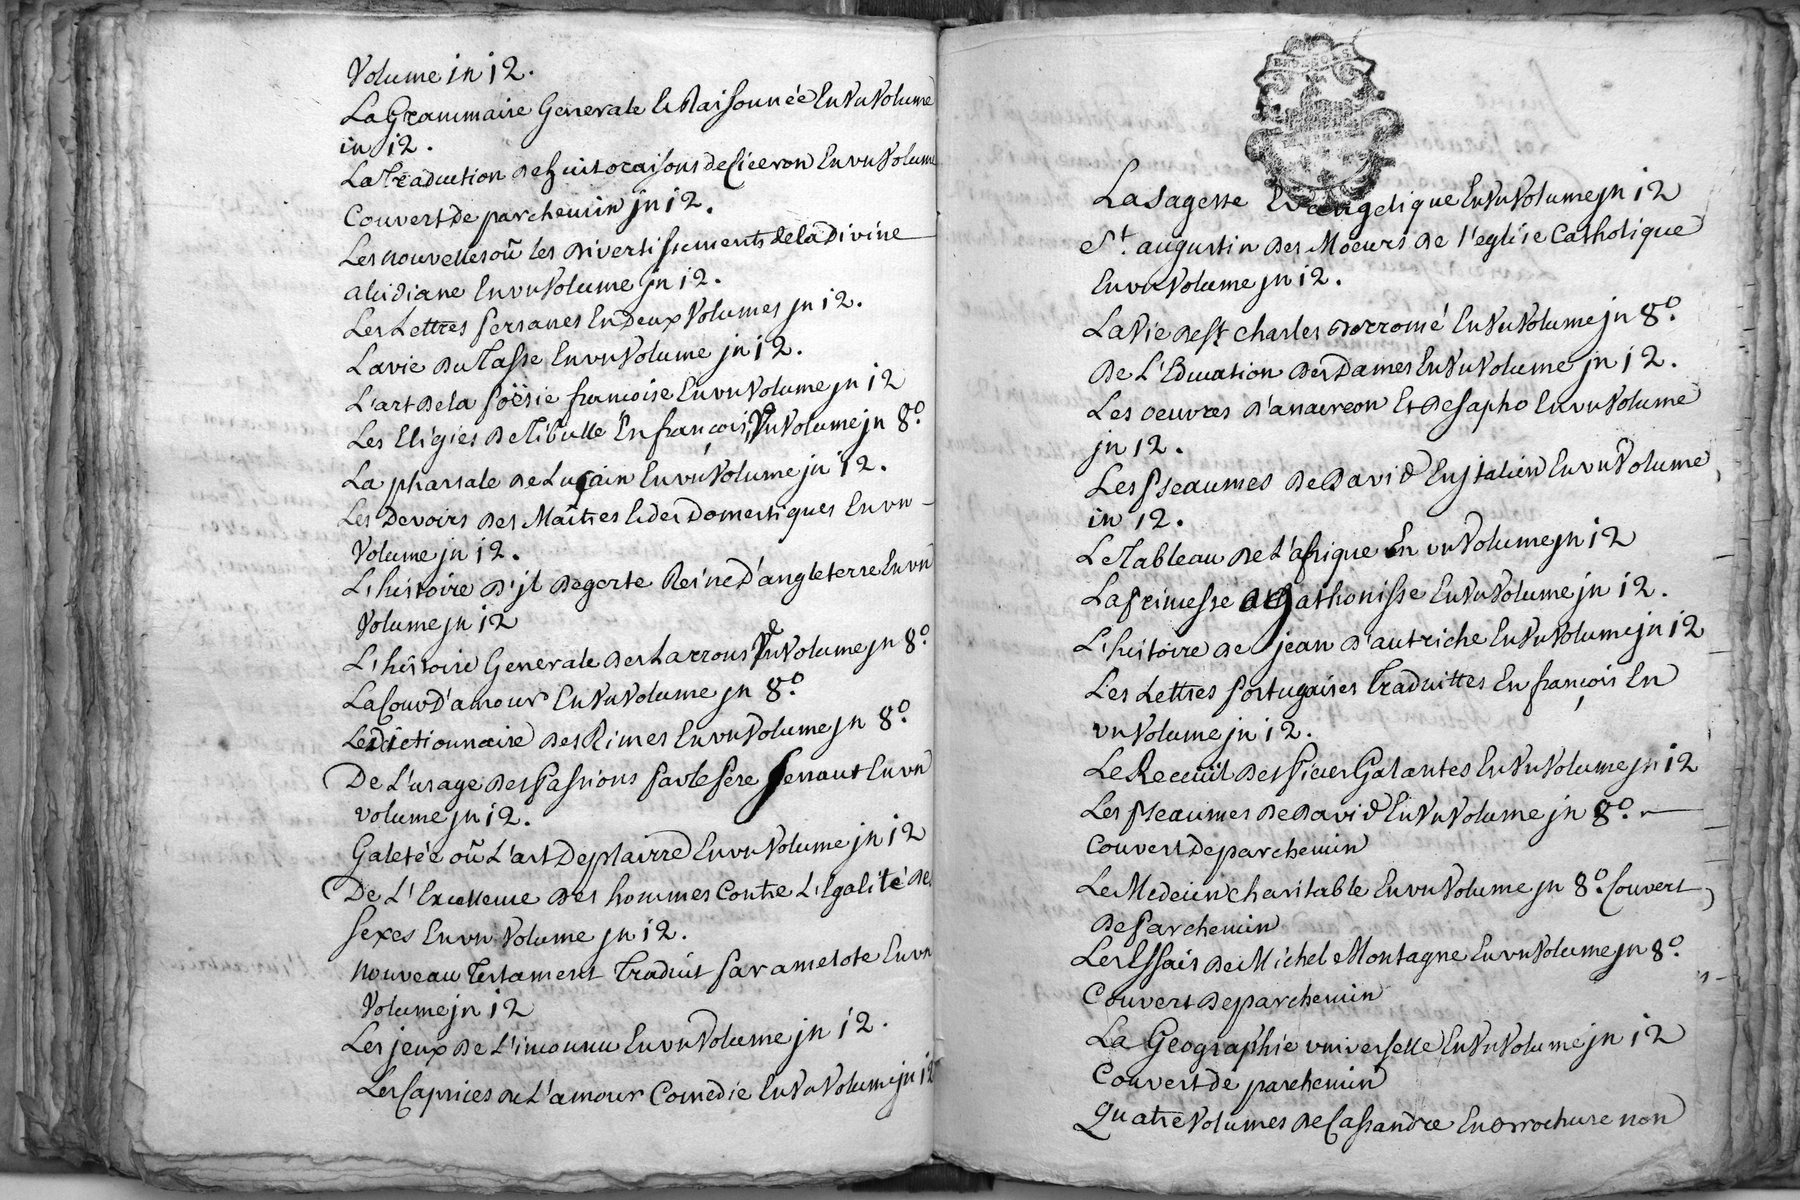 Volume in 12.
La Grammaire Generale et Raisonnée En un Volume
in 12.
La Traduction de huit oraisons de Ciceron En un Volume
Couvert de parchemin jn 12.
Les nouvelles où les divertissements de la Divine
alcidiane En un Volume jn 12.
Les Lettres Persanes En Deux Volumes jn 12.
La vie du Tasse En un Volume jn 12.
L'art de la Poësie françoise En un Volume jn 12
Les Elégies de Tibulle En françois, Un Volume jn 8.º
La pharsale de Lucain En un Volume jn 12.
Les Devoirs des Maîtres et des Domestiques En un
Volume jn 12.
L'histoire d'jldegerte Reine D'angleterre En un
Volume jn 12
L'histoire Generale des Larrons Un Volume jn 8.º
La Cour D'amour En un Volume jn 8.º
Le Dictionnaire des Rimes En un Volume jn 8.º
De L'usage des Passions Par le Pere Senaut En un
volume jn 12.
Galatée où L'art De plaire En un Volume jn 12
De L'Excellence des hommes Contre L'Egalité des
Sexes En un Volume jn 12.
nouveau Testament Traduit Par amelote En un
Volume jn 12
Les jeux de L'inconnu En un Volume jn 12.
Les Caprices de L'amour Comedie En un Volume jn 12
La Sagesse Evangelique En un Volume jn 12
St. augustin des Moeurs de l'eglise Catholique
En un Volume jn 12.
La Vie de St Charles Borromé En un Volume jn 8.º
De L'Education des Dames En un Volume jn 12.
Les oeuvres d'anacreon Et de Sapho En un Volume
jn 12.
Les Pseaumes de David En jtalien En un Volume
in 12.
Le Tableau de L'afrique En un Volume jn 12
La Princesse agathonisse En un Volume jn 12.
L'histoire de jean d'autriche En un Volume jn 12
Les Lettres Portugaises Traduittes En françois En
un Volume jn 12.
Le Receuil des Pieces Galantes En un Volume jn 12
Les Pseaumes de David En un Volume jn 8.º
Couvert De parchemin
Le Medecin charitable En un Volume jn 8.º Couvert
de Parchemin
Les Essais de Michel Montagne En un Volume jn 8.º
Couvert de parchemin
La Geographie universelle En un Volume jn 12
Couvert de parchemin
Quatre Volumes de Cassandre En Brochure non